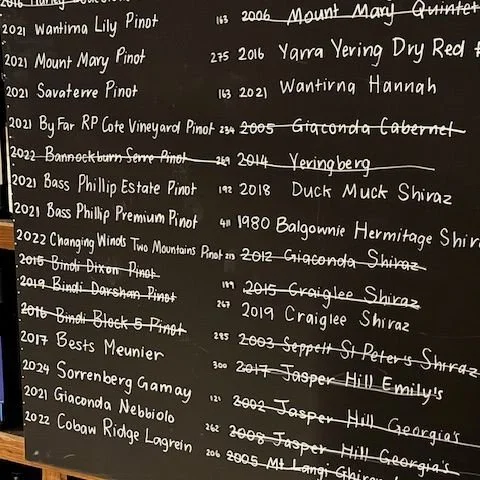 2016 Hurley
2021 Wantirna Lily Pinot
2021 Mount Mary Pinot
2021 Savaterre Pinot
2021 By Far RP Cote Vineyard Pinot
2022 Bannockburn Serre Pinot
2021 Bass Phillip Estate Pinot
2021 Bass Phillip Premium Pinot
2022 Changing Winds Two Mountains Pinot
2015 Bindi Dixon Pinot
2019 Bindi Darshan Pinot
2016 Bindi Block 5 Pinot
2017 Bests Meunier
2024 Sorrenberg Gamay
2021 Giaconda Nebbiolo
2022 Cobaw Ridge Lagrein
163 2006 Mount Mary Quintet
275 2016 Yarra Yering Dry Red #
163 2021 Wantirna Hannah
234 2005 Giaconda Cabernet
269 2014 Yeringberg
192 2018 Duck Muck Shiraz
411 1980 Balgownie Hermitage Shir
213 2012 Giaconda Shiraz
189 2015 Craiglee Shiraz
267 2019 Craiglee Shiraz
285 2003 Seppelt St Peter's Shiraz
300 2017 Jasper Hill Emily's
121 2002 Jasper Hill Georgia's
262 2008 Jasper Hill Georgia's
206 2005 Mt Langi Ghiran